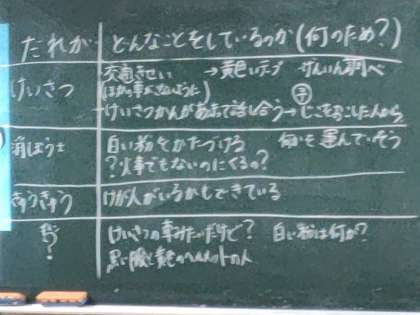 だれが どんなことをしているのか(何のため?)
けいさつ 交通きせい →黄色いテープ げんいん調べ
(ほかの車がこないように)
けいさつかんがあつまって話し合う→じこをおこした人から
消ぼう士 白い粉をかたづける 何かを運んでいそう
?火事でもないのにくるの?
きゅうきゅう けが人がいるかもできている
? けいさつの車みたいだけど? 白い粉は何か?
黒い服と黄色のヘルメットの人